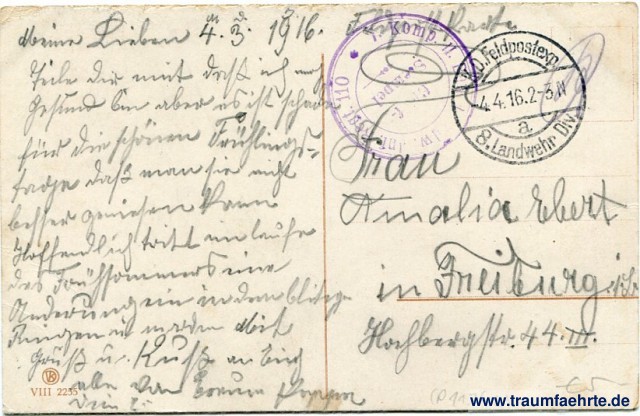 Meine Lieben 4. 3. 1916.
Teile Dir mit daß ich noch
Gesund bin aber es ist schade
für die schönen Frühlings-
tage daß man sie nicht
besser genießen kann
Hoffendlich tritt im laufe
des Frühsommers eine
Änderung ein in dem blutigen
Ringen
Gruß u. Kuß an Euch
alle von
Feldpostkarte
7 Komp.
110
K.D. Feldpostexp.
4.4.16.2-3N
a.
8. Landwehr Div.
Frau
Amalia Ebert
in Freiburg i/B.
Hochbergstr. 44 III.
VIII 2235
www.traumfaehrte.de